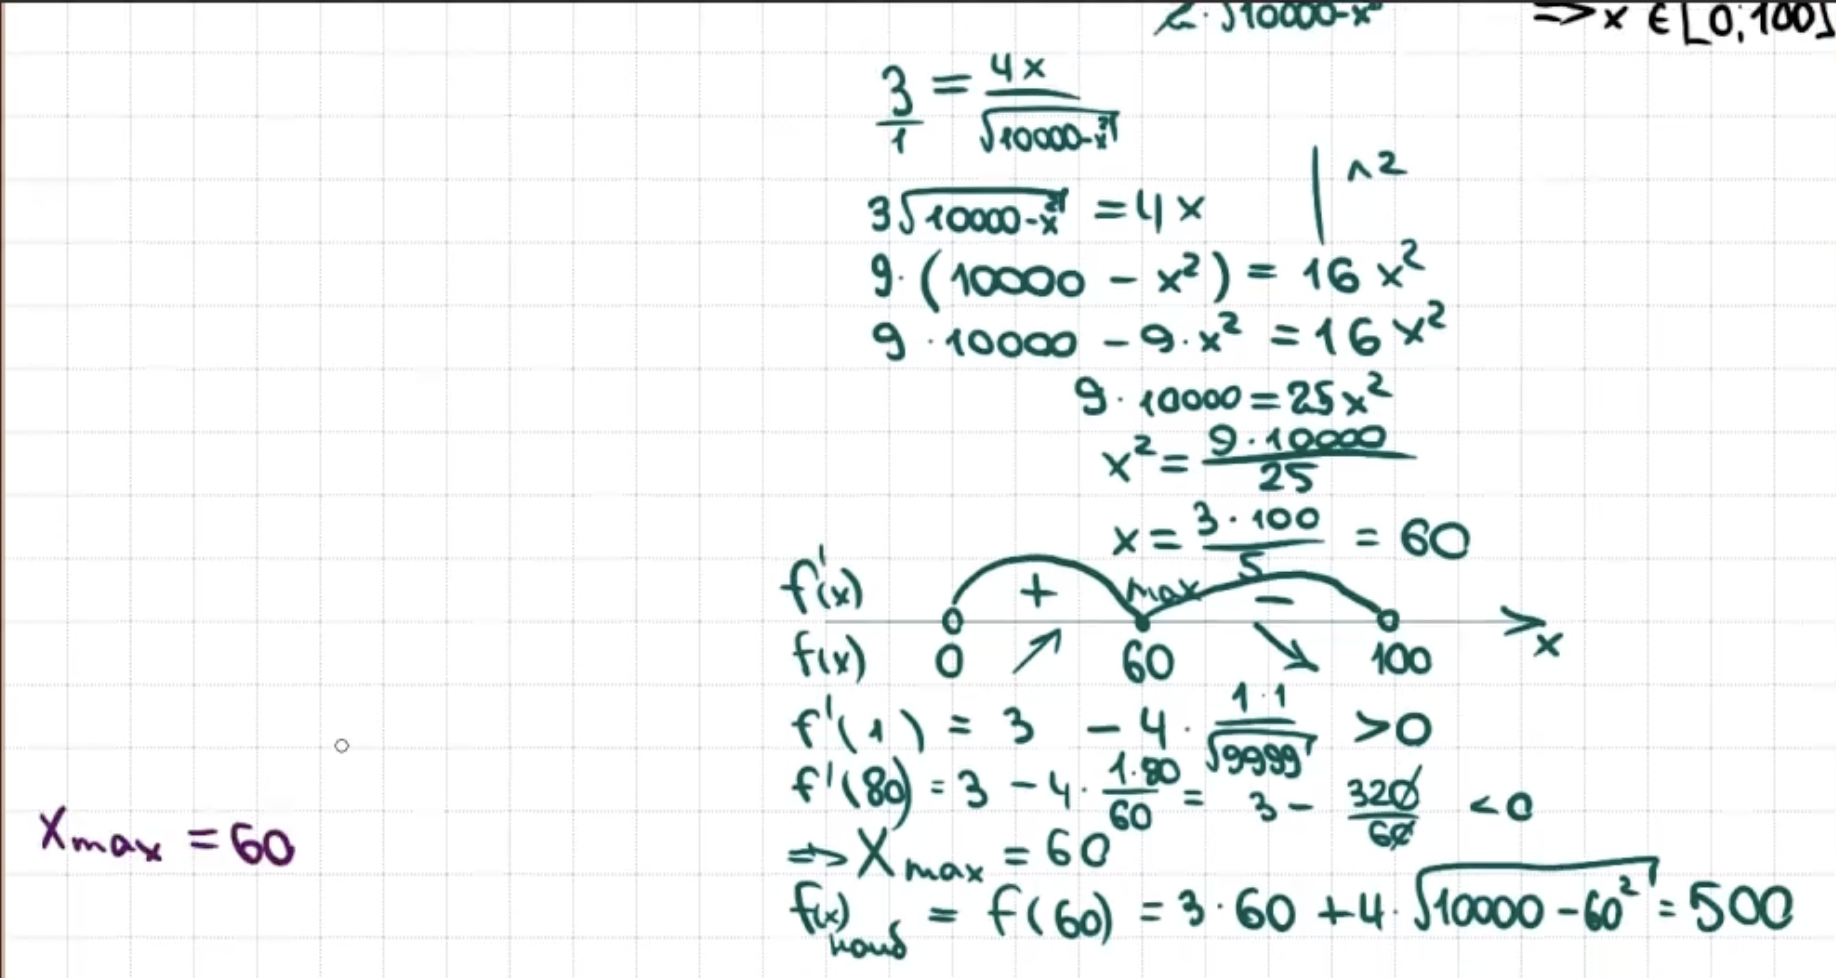 2·√10000-x² => x ∈ [0;100]
3/1 = 4x/√10000-x²
3√10000-x² = 4x | ^2
9·(10000 - x²) = 16x²
9·10000 - 9·x² = 16x²
9·10000 = 25x²
x² = 9·10000/25
x = 3·100/5 = 60
f'(x) + max -
f(x) 0 ↗ 60 ↘ 100 x
f'(1) = 3 - 4·1·1/√9999 > 0
f'(80) = 3 - 4·1·80/60 = 3 - 320/60 < 0
=> Xmax = 60
Xmax = 60
f(x) = f(60) = 3·60 + 4·√10000-60² = 500